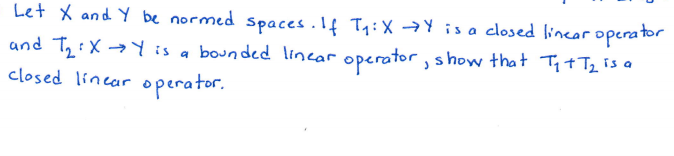 Let X and Y be normed spaces. If T₁: X → Y is a closed linear operator
and T₂: X → Y is a bounded linear operator, show that T₁ + T₂ is a
closed linear operator.